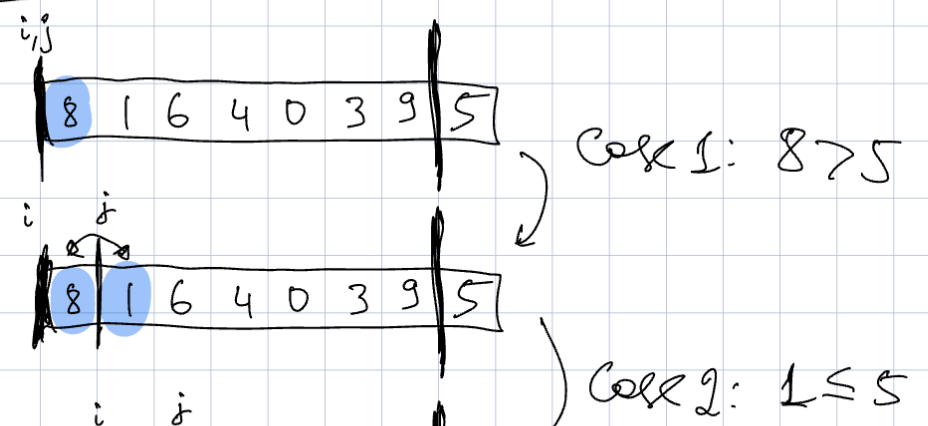 i,j
8 1 6 4 0 3 9 5
Case 1: 8>5
i j
8 1 6 4 0 3 9 5
Case 2: 1≤5
i j